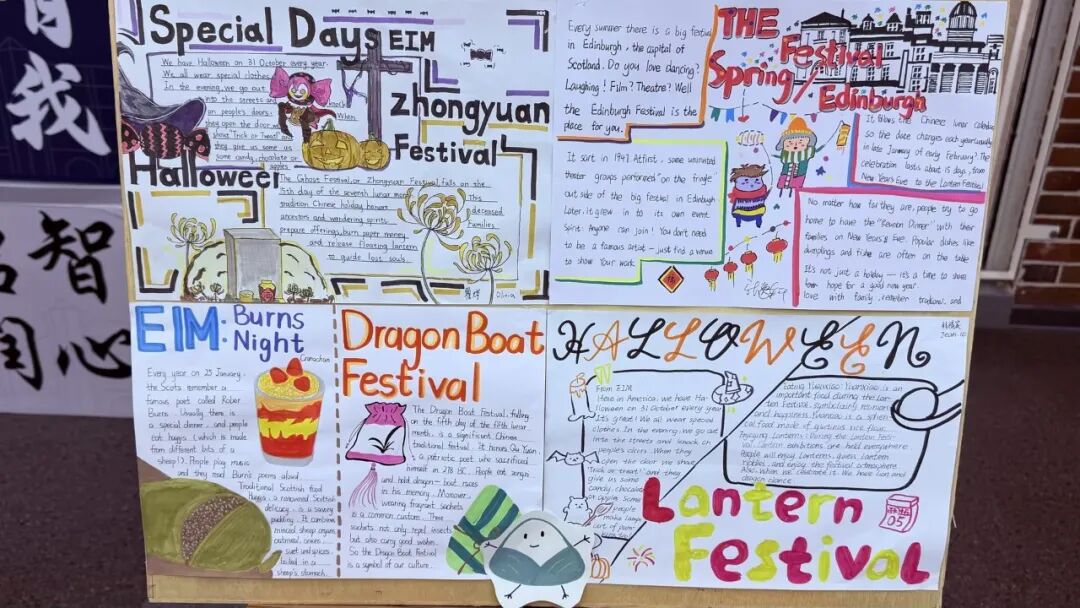 我
智
润心
Special Days EIM
We have Halloween on 31 October every year.
We all wear special clothes
In the evening, we go out
into the streets and
on people's doors.
they open the door we
shout "Trick or Treat" and
they give us some
some candy, chocolate or
apples
Zhongyuan
Festival
Halloween
The Ghost Festival, or Zhongyuan Festival, falls on the
15th day of the seventh lunar
This
tradition Chinese holiday honors
deceased
ancestors and wandering spirits.
Families
prepare offerings, burn paper money,
and release floating lantern
to guide lost souls.
Olivia
Every summer there is a big festival
in Edinburgh, the capital of
Scotland. Do you love dancing?
Laughing! Film? Theatre? Well
the Edinburgh Festival is the
place for you.
It sart in 1947. At first, some uninvited
theater groups performed "on the fringle"
out side of the big festival in Edinburgh
Later, it grew in to its own event.
Spirit: Anyone can join! You don't need
to be a famous artist — just find a venue
to show your work.
THE
Festival
Spring/
Edinburgh
It follows the Chinese lunar calendar
so the date changes each year (usually
in late January of early February? The
celebration lasts about 15 days, from
New Year's Eve to the Lantern Festival
No matter how far they are, people try to go
home to have the "Reunion Dinner" with their
families on New Year's Eve. Popular dishes like
dumplings and fishe are often on the table
It's not just a holiday — it's a time to share
hope for a good new year
love with family, remember tradions, and
EIM: Burns
Night
Cranachan
Every year on 25 January,
the Scots remember a
famous poet called Rober
Burns. Usually there is
a special dinner, and people
eat hagis (which is made
from different bits of a
sheep!). People play music
and they read Burn's poems aloud.
Traditional Scottish food
Haggis, a renowned Scottish
delicacy, is a savory
pudding. It combines
minced sheep organs
oatmeal, onions
suet and spices,
boiled in a
sheep's stomach.
Dragon Boat
Festival
The Dragon Boat Festival, falling
on the fifth day of the fifth lunar
month, is a significant Chinese
traditional festival. It honors Qu Yuan,
a patriotic poet who sacrificed
himself in 278 BC. People eat zongzi
and hold dragon-boat races
in his memory. Moreover,
wearing fragrant sachets
is a common custom. These
sachets not only repel insects
but also carry good wishes.
So the Dragon Boat Festival
is a symbol of our culture.
HALLOWEEN
From EIM
Here in America, we have Ha-
lloween on 31 October every year
It's great! We all wear special
clothes. In the evening, we go out
into the streets and knock on
people's doors. When they
open the door we shout
"Trick or treat!" and they
give us some
candy, chocolate
or apples. Some
people
make lange
Eating Yuanxiao: Yuanxiao is an
important food during the Lan-
tern Festival, symbolizing reunion
and happiness. Yuanxiao is a spheri-
cal food made of glutinous rice flour.
Enjoying Lanterns: During the Lantern Fest-
ival, Lantern exhibitions are held everywhere
People will enjoy Lanterns, guess Lantern
riddles, and enjoy the festival atmosphere.
dragon dance.
Lantern
Festival
05